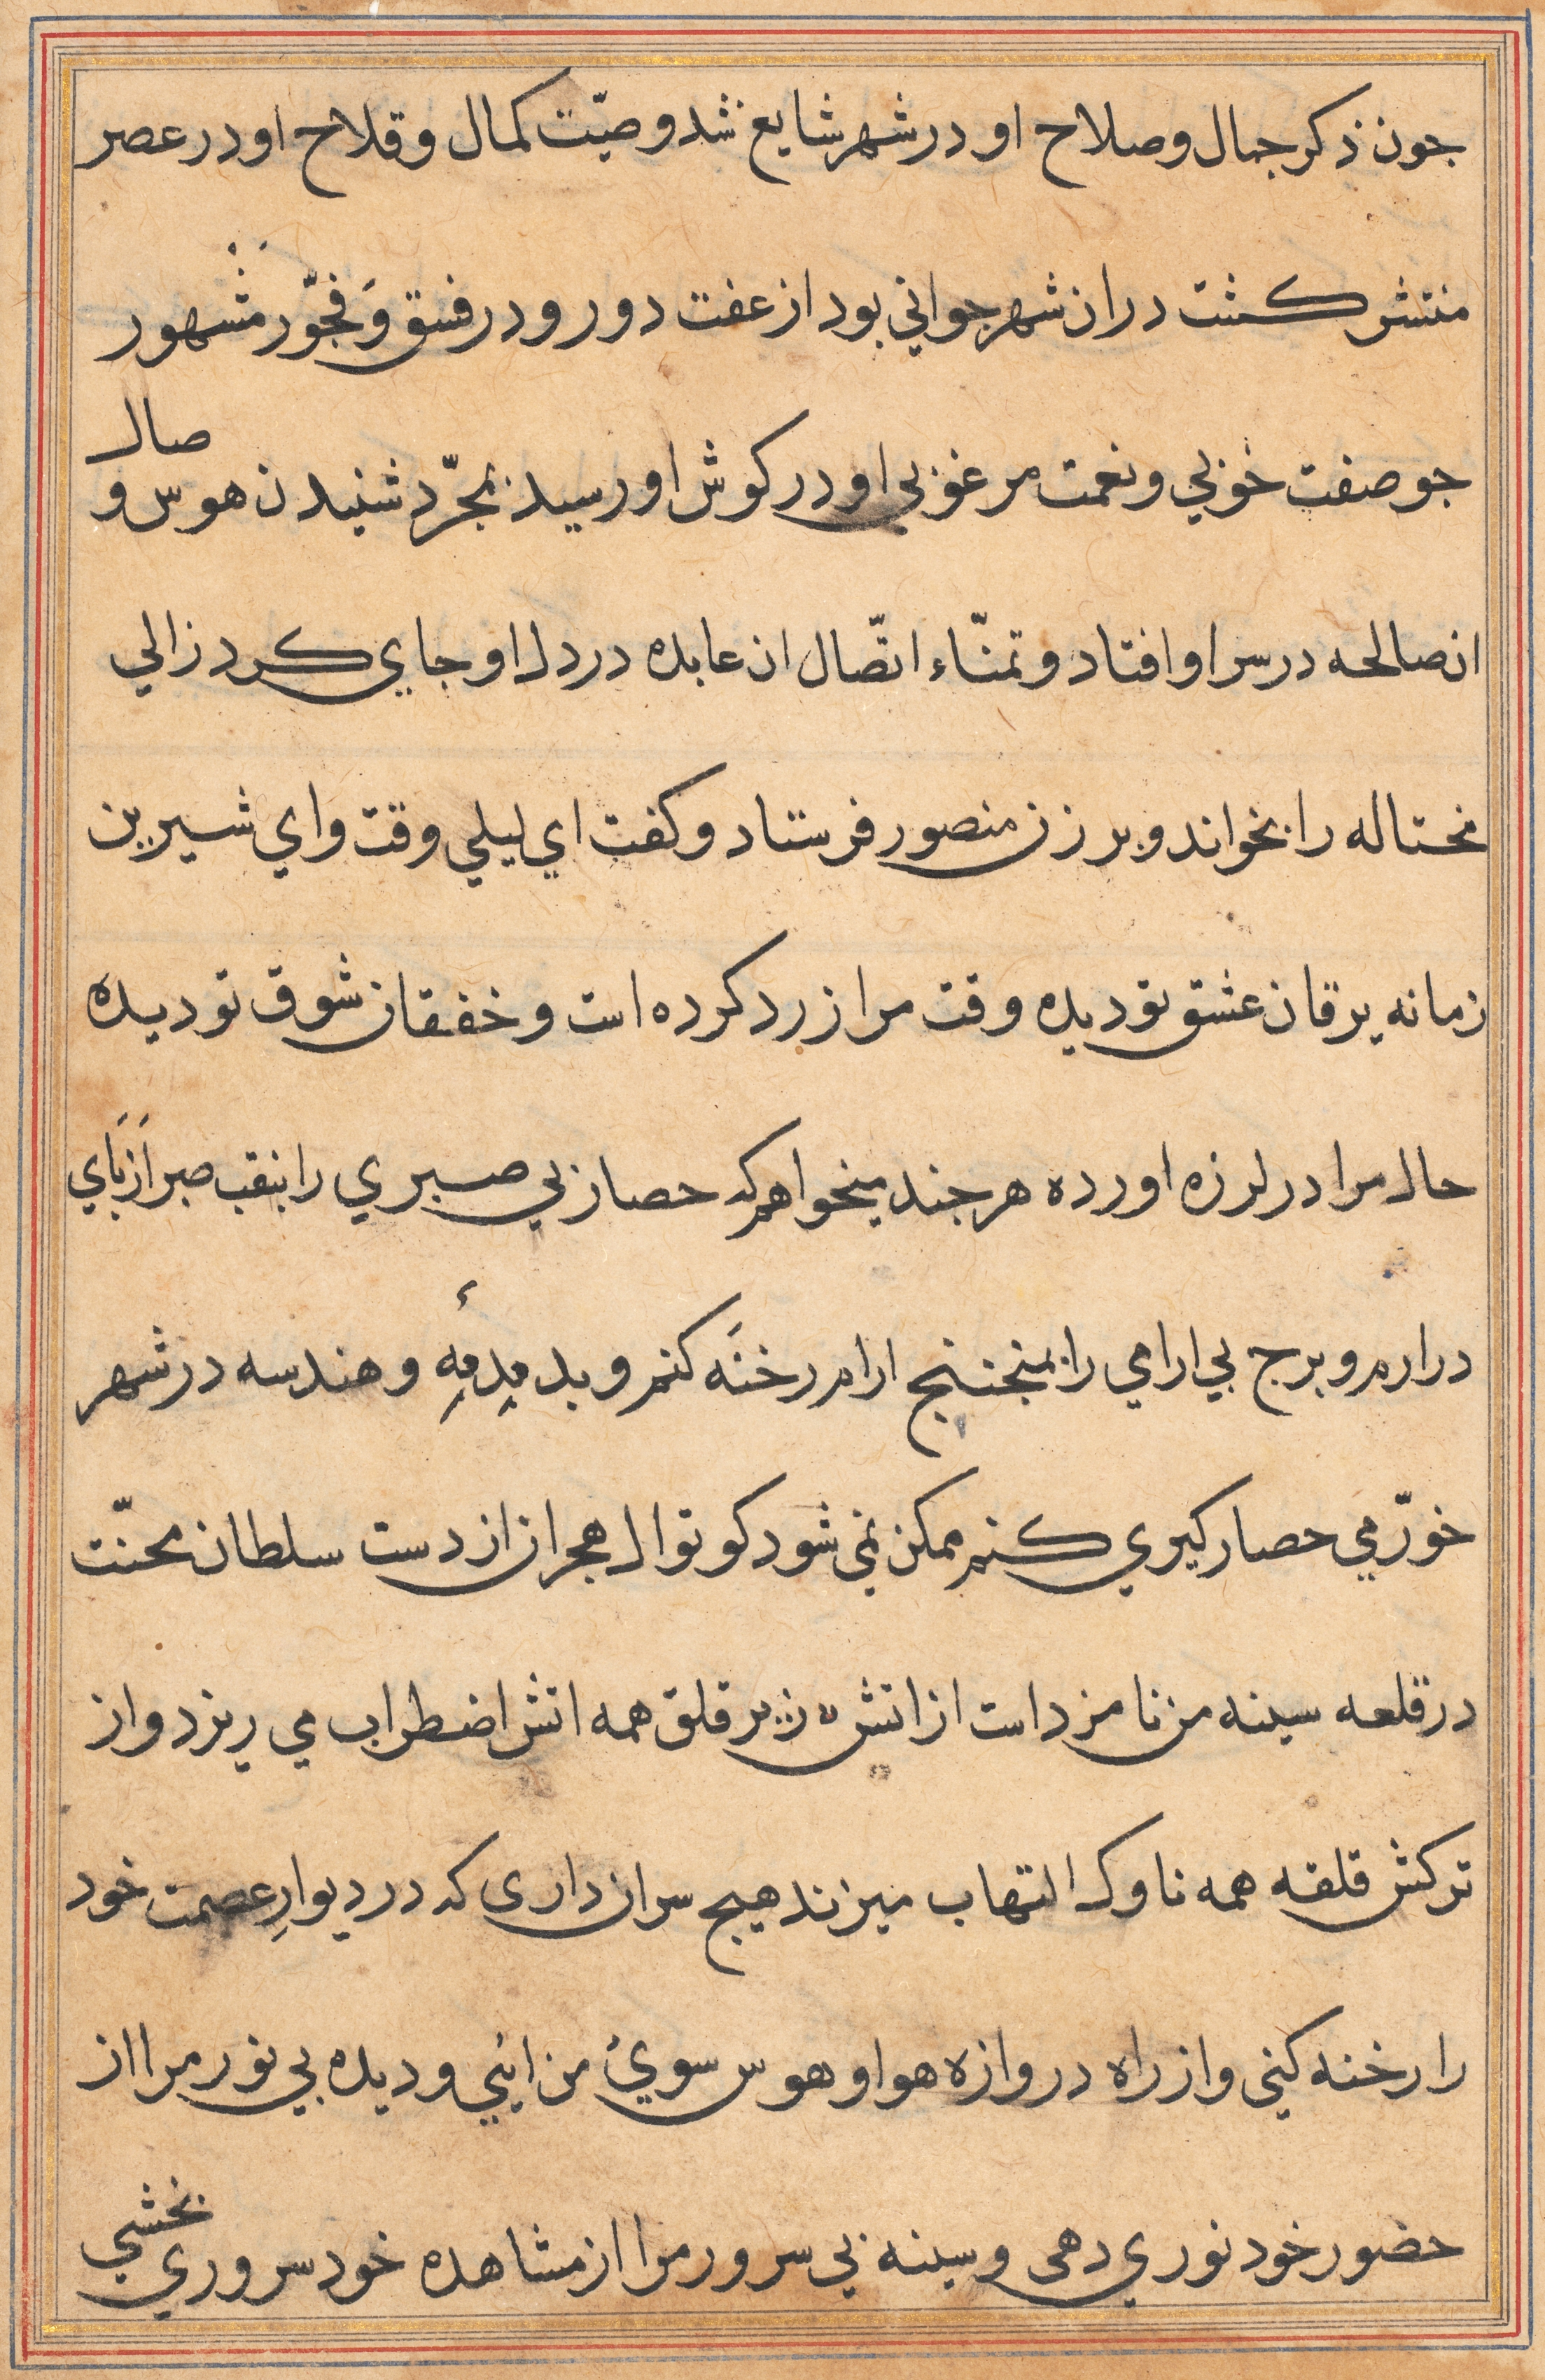 جون ذكر جمال و صلاح او در شهر شايع شد و صيّت كمال و قلاح او در عصر
منتشر كشت در ان شهر جواني بود از عفت دور و در فسق وَ فجّور مشهور
جو صفت خوبي و نعمت مرغوبي او در كوش او رسيد بمجرّد شنيدن هوس و صال
ان صالحه در سر او افتاد و تمنّاء اتّصال ان عابده در دل او جاي كرد زالي
محتاله را بخواند و بر زن منصور فرستاد و كفت اي ليلي وقت و اي شيرين
زمانه يرقان عشق تو ديده وقت مرا زرد كرده است و خفقان شوق تو ديده
حال مرا در لرزه اورده هر جند ميخواهم كه حصار بي صبري را بنقب صبر اَز پَاي
در ارم و برج بي ارامي را بمنجنيج ارام رخنَه كنم و بد مِدمِهٔ و هندسه در شهر
خورّمي حصار كيري كنم ممكن نمي شود كوتوال هجران از دست سلطان محنّت
در قلعه سينه من نامزد است از اتش زير قلق همه اتش اضطراب مي ريزد و از
تركش قلقه همه ناوك التهاب ميزند هيج سر ان داري كه در ديوارِ عصمت خود
را رخنه كني و از راه دروازه هوا و هوس سوئ من ايئي و ديده بي نور مرا از
حضور خود نوري دهى و سينه بي سرور مرا از مشاهده خود سروري بخشي